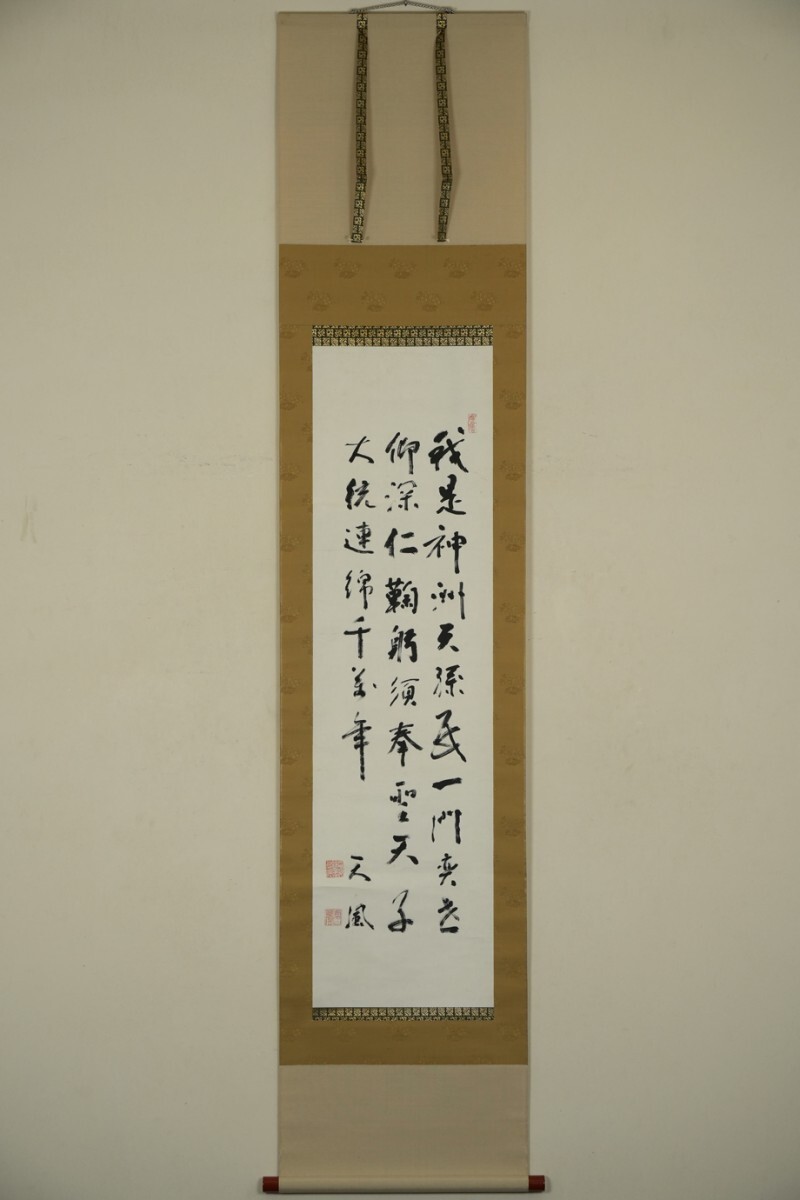 我是神洲天孫民一門奕世
仰深仁鞠躬須奉聖天子
大統連綿千萬年
天風